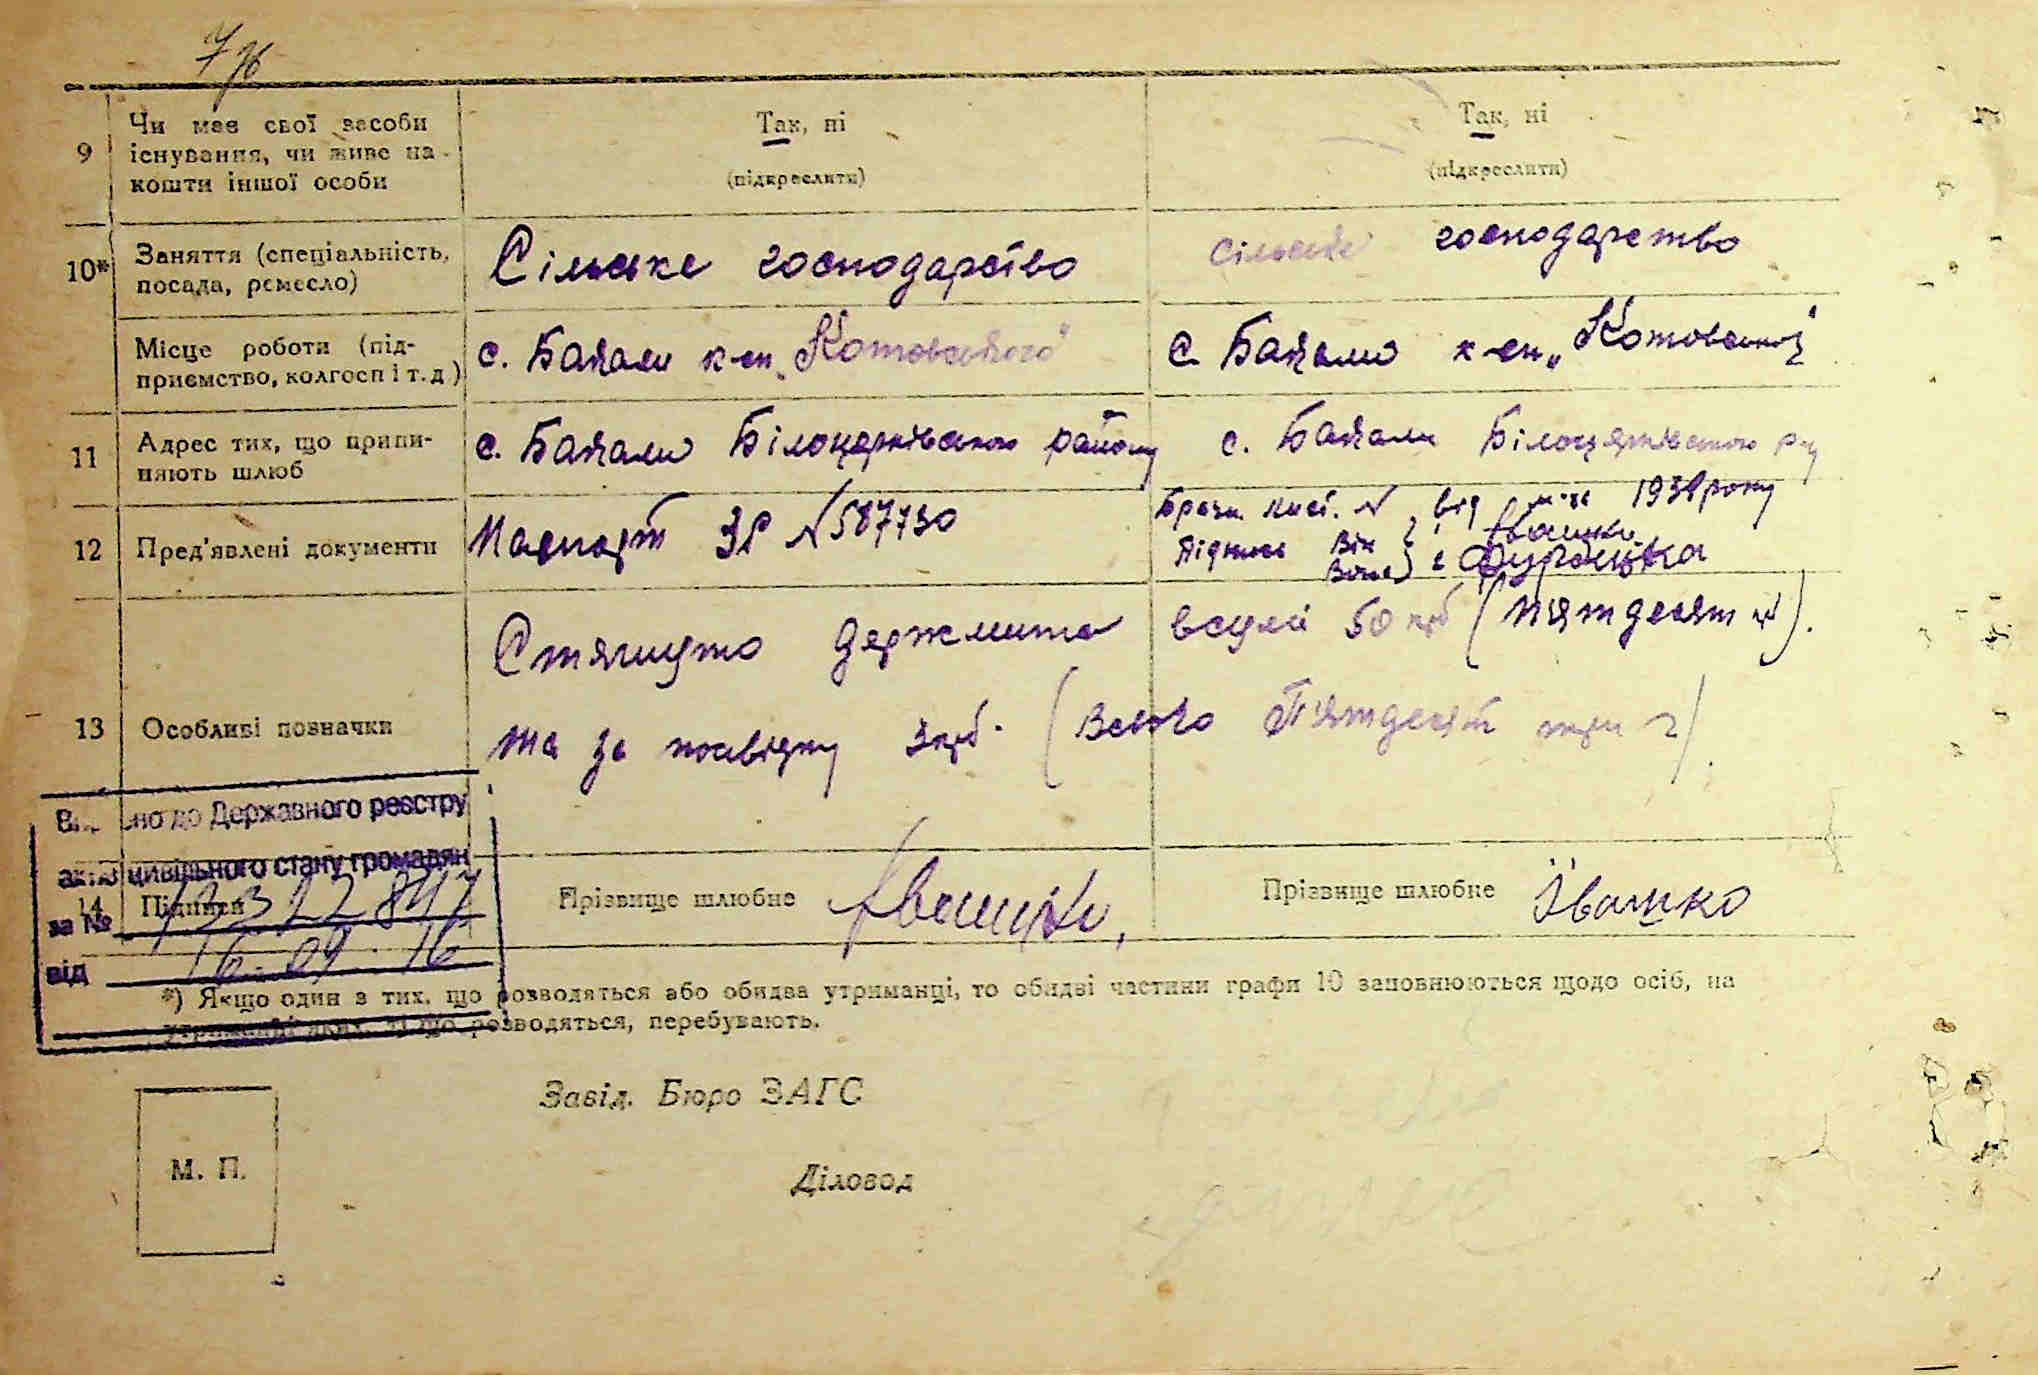 9 Чи має свої засоби існування, чи живе на кошти іншої особи
Так, ні
(підкреслити)
Так, ні
(підкреслити)
10* Заняття (спеціальність, посада, ремесло)
Сільське господарство
сільське господарство
Місце роботи (підприємство, колгосп і т.д)
с. Бакали к-сп „Котовського"
с. Бакали к-сп „Котовського"
11 Адрес тих, що припиняють шлюб
с. Бакали Білоцерківського району
с. Бакали Білоцерківського р-ну
12 Пред'явлені документи
Паспорт № 587730
від 1938 року
Підписи Він
Вона
13 Особливі позначки
Стягнуто держмита всього 50 крб (п'ятдесят кр).
та за посвідку 3 крб. (Всього П'ятдесят три)
но до Державного реєстру
актів цивільного стану громадян
за №
від 16.09.16
14 Підписи
Прізвище шлюбне Івашко,
Прізвище шлюбне Івашко
*) Якщо один з тих, що розводяться або обидва утриманці, то обидві частини графи 10 заповнюються щодо осіб, на
утриманні яких ті що розводяться, перебувають.
Завід. Бюро ЗАГС
М. П.
Діловод